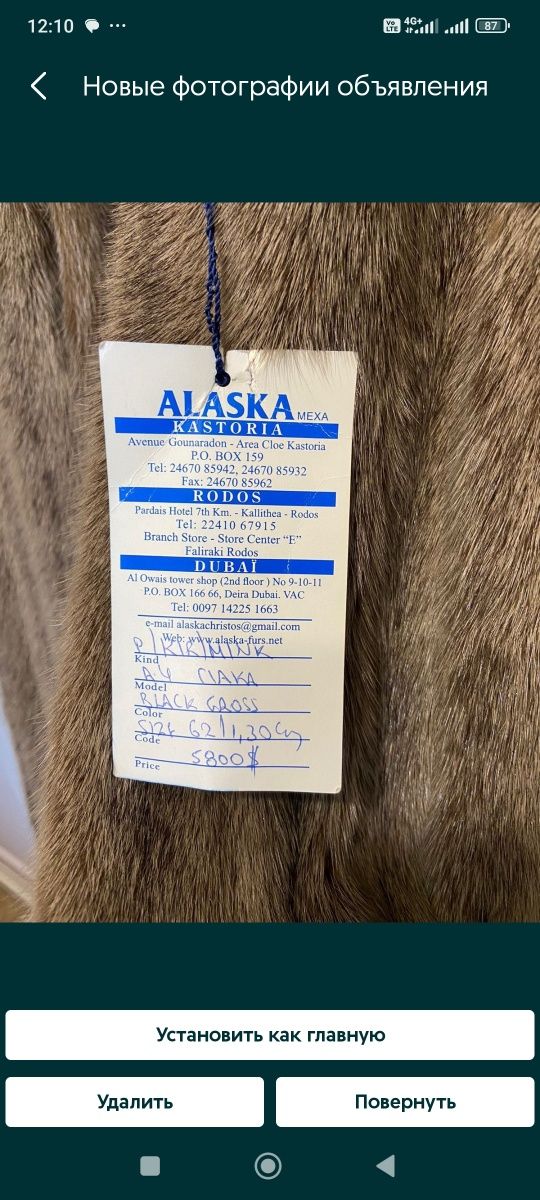 12:10
Vo LTE 4G+ 87
Новые фотографии объявления
ALASKA MEXA
KASTORIA
Avenue Gounaradon - Area Cloe Kastoria
P.O. BOX 159
Tel: 24670 85942, 24670 85932
Fax: 24670 85962
RODOS
Pardais Hotel 7th Km. - Kallithea - Rodos
Tel: 22410 67915
Branch Store - Store Center “E”
Faliraki Rodos
DUBAÏ
Al Owais tower shop (2nd floor ) No 9-10-11
P.O. BOX 166 66, Deira Dubai. VAC
Tel: 0097 14225 1663
e-mail alaskachristos@gmail.com
Web: www.alaska-furs.net
MINK
Kind
Model
BLACK GROSS
Color
SIZE 62/1,30 cm
Code
5800$
Price
Установить как главную
Удалить
Повернуть